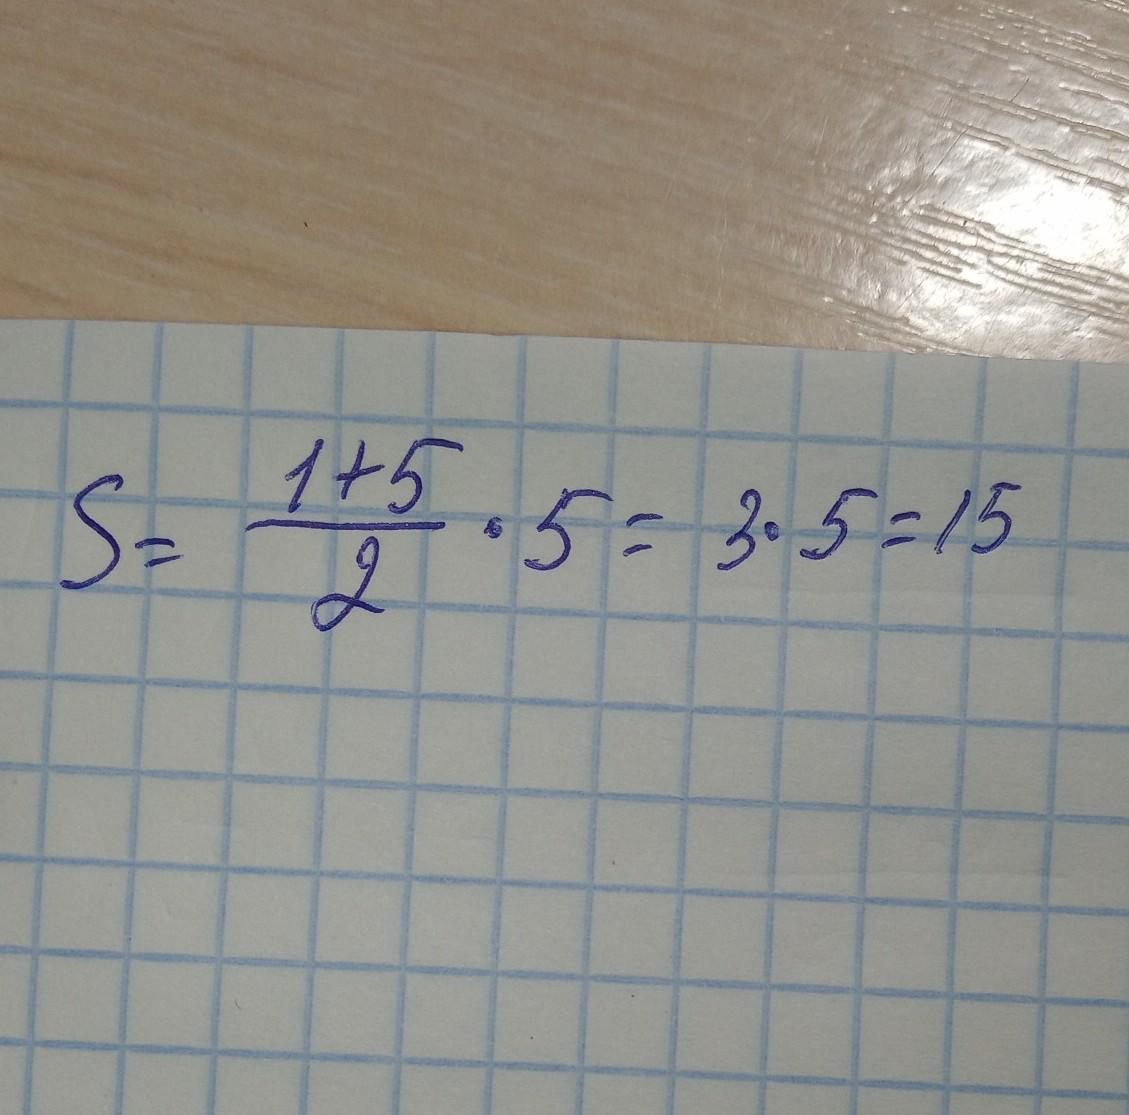 S = (1+5)/2 · 5 = 3 · 5 = 15